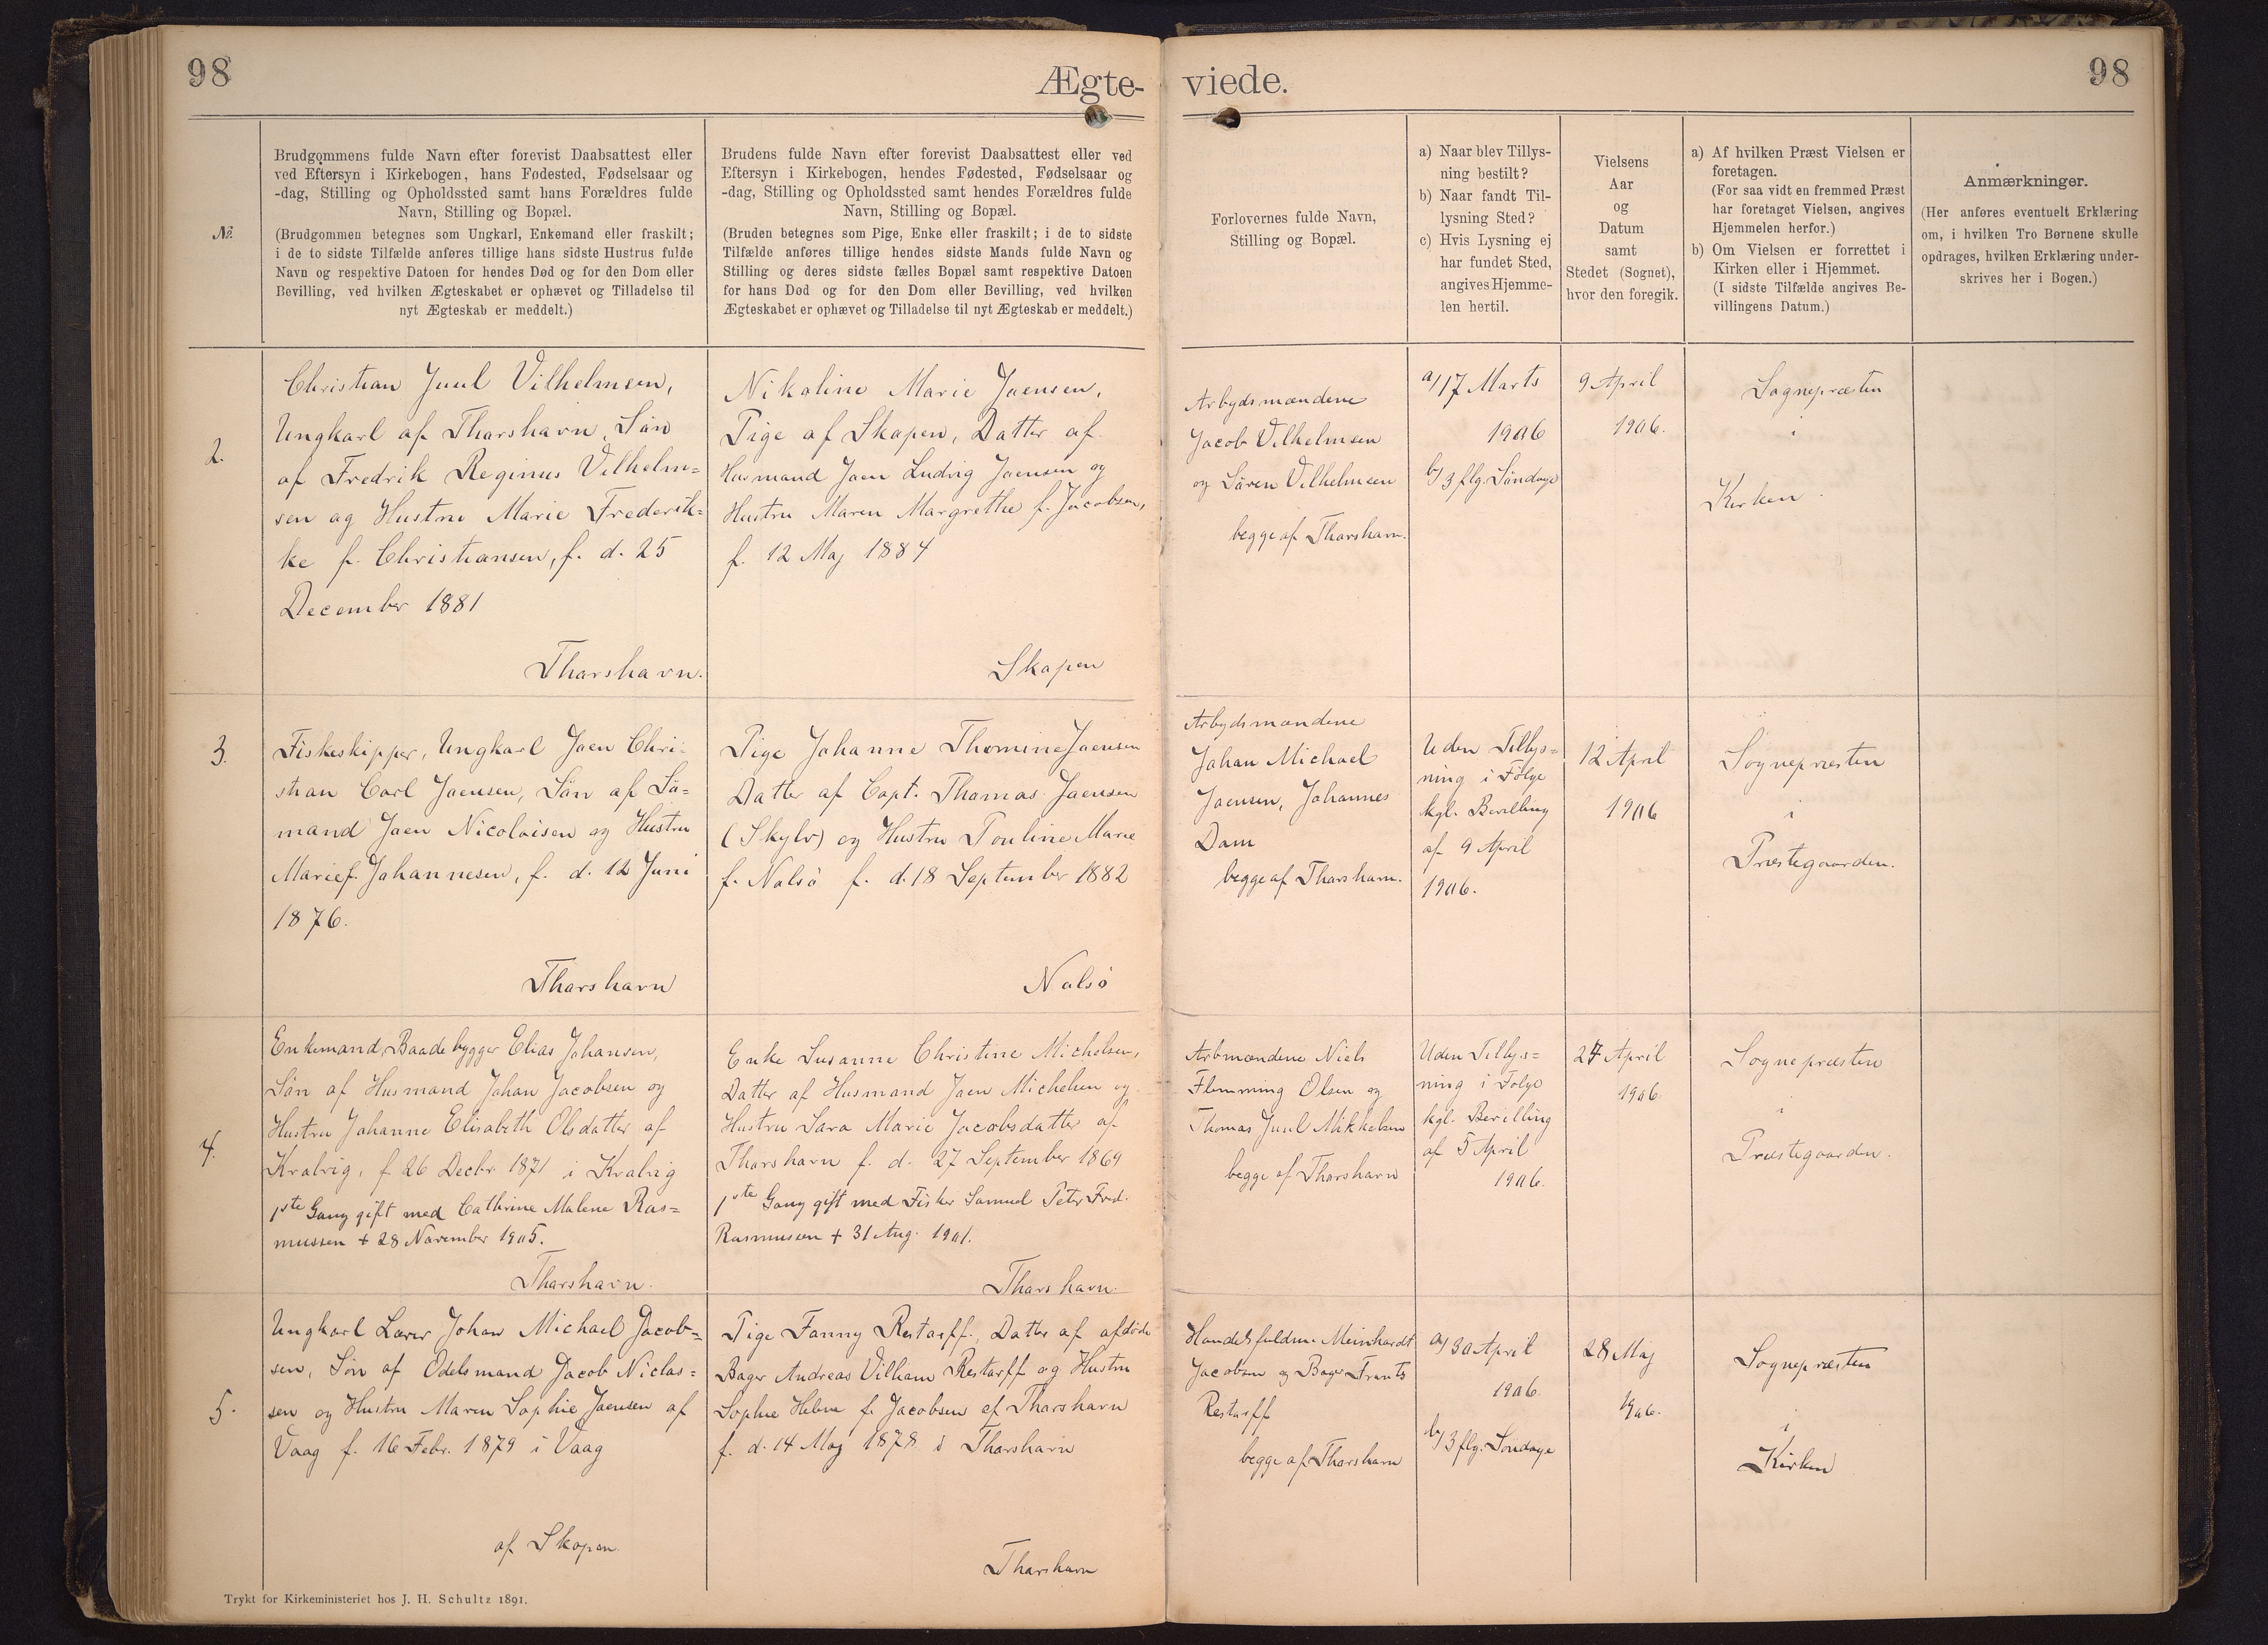 98
Ægte-
viede.
98
№.
Brudgommens fulde Navn efter forevist Daabsattest eller
ved Eftersyn i Kirkebogen, hans Fødested, Fødselsaar og
-dag, Stilling og Opholdssted samt hans Forældres fulde
Navn, Stilling og Bopæl.
(Brudgommen betegnes som Ungkarl, Enkemand eller fraskilt;
i de to sidste Tilfælde anføres tillige hans sidste Hustrus fulde
Navn og respektive Datoen for hendes Død og for den Dom eller
Bevilling, ved hvilken Ægteskabet er ophævet og Tilladelse til
nyt Ægteskab er meddelt.)
Brudens fulde Navn efter forevist Daabsattest eller ved
Eftersyn i Kirkebogen, hendes Fødested, Fødselsaar og
-dag, Stilling og Opholdssted samt hendes Forældres fulde
Navn, Stilling og Bopæl.
(Bruden betegnes som Pige, Enke eller fraskilt; i de to sidste
Tilfælde anføres tillige hendes sidste Mands fulde Navn og
Stilling og deres sidste fælles Bopæl samt respektive Datoen
for hans Død og for den Dom eller Bevilling, ved hvilken
Ægteskabet er ophævet og Tilladelse til nyt Ægteskab er meddelt.)
Forlovernes fulde Navn,
Stilling og Bopæl.
a) Naar blev Tillys-
ning bestilt?
b) Naar fandt Til-
lysning Sted?
c) Hvis Lysning ej
har fundet Sted,
angives Hjemme-
len hertil.
Vielsens
Aar
og
Datum
samt
Stedet (Sognet),
hvor den foregik.
a) Af hvilken Præst Vielsen er
foretagen.
(For saa vidt en fremmed Præst
har foretaget Vielsen, angives
Hjemmelen herfor.)
b) Om Vielsen er forrettet i
Kirken eller i Hjemmet.
(I sidste Tilfælde angives Be-
villingens Datum.)
Anmærkninger.
(Her anføres eventuelt Erklæring
om, i hvilken Tro Børnene skulle
opdrages, hvilken Erklæring under-
skrives her i Bogen.)
2.
Christian Juul Vilhelmsen,
Ungkarl af Thorshavn, Søn
af Fredrik Reginus Vilhelm=
sen og Hustru Marie Frederik=
ke f. Christiansen, f. d. 25
December 1881
Thorshavn.
Nikoline Marie Joensen,
Pige af Skopen, Datter af
Husmand Joen Ludvig Joensen og
Hustru Maren Margrethe f. Jacobsen,
f. 12 Maj 1884
Skopen
Arbejdsmændene
Jacob Vilhelmsen
og Søren Vilhelmsen
begge af Thorshavn.
a/ 17 Marts
1906
b/ 3 flg. Søndage
9 April
1906.
Sognepræsten
i
Kirken.
3.
Fiskeskipper, Ungkarl Joen Chri-
stian Carl Joensen, Søn af Sø=
mand Joen Nicolaisen og Hustru
Marie f. Johannesen, f. d. 12 Juni
1876.
Thorshavn
Pige Johanne Thomine Joensen
Datter af Capt. Thomas Joensen
og Hustru Pouline Marie
f. Nolsø f. d. 18 September 1882
Nolsø
Arbejdsmændene
Johan Michael
Joensen, Johannes
Dam
begge af Thorshavn.
Uden Tillys=
ning i Følge
kgl. Bevilling
af 9 April
1906.
12 April
1906
Sognepræsten
i
Præstegaarden.
4.
Enkemand, Baadebygger Elias Johansen,
Søn af Husmand Johan Jacobsen og
Hustru Johanne Elisabeth Olsdatter af
Kvalvig, f. 26 Decbr. 1871 i Kvalvig
1ste Gang gift med Cathrine Malene Ras=
mussen + 28 November 1905.
Thorshavn.
Enke Susanne Christine Michelsen,
Datter af Husmand Joen Michelsen og
Hustru Sara Marie Jacobsdatter af
Thorshavn f. d. 27 September 1869
1ste Gang gift med Fisker Samuel Peter Fred.
Rasmussen + 31 Aug. 1901.
Thorshavn.
Arbmændene Niels
Flemming Olsen og
Thomas Juul Mikkelsen
begge af Thorshavn
Uden Tillys=
ning i Følge
kgl. Bevilling
af 5 April
1906.
27 April
1906.
Sognepræsten
i
Præstegaarden.
5.
Ungkarl Lærer Johan Michael Jacob=
sen, Søn af Odelsmand Jacob Niclas=
sen og Hustru Maren Sophie Joensen af
Vaag f. 16 Febr. 1879 i Vaag
af Skopen.
Pige Fanny Restorff, Datter af afdøde
Bager Andreas Vilham Restorff og Hustru
Sophie Helene f. Jacobsen af Thorshavn
f. d. 14 Maj 1878 i Thorshavn
Thorshavn
Meinhardt
Jacobsen og Bager Frants
Restorff
begge af Thorshavn
a/ 30 April
1906.
b/ 3 flg. Søndage
28 Maj
1906.
Sognepræsten
i
Kirken
Trykt for Kirkeministeriet hos J. H. Schultz 1891.